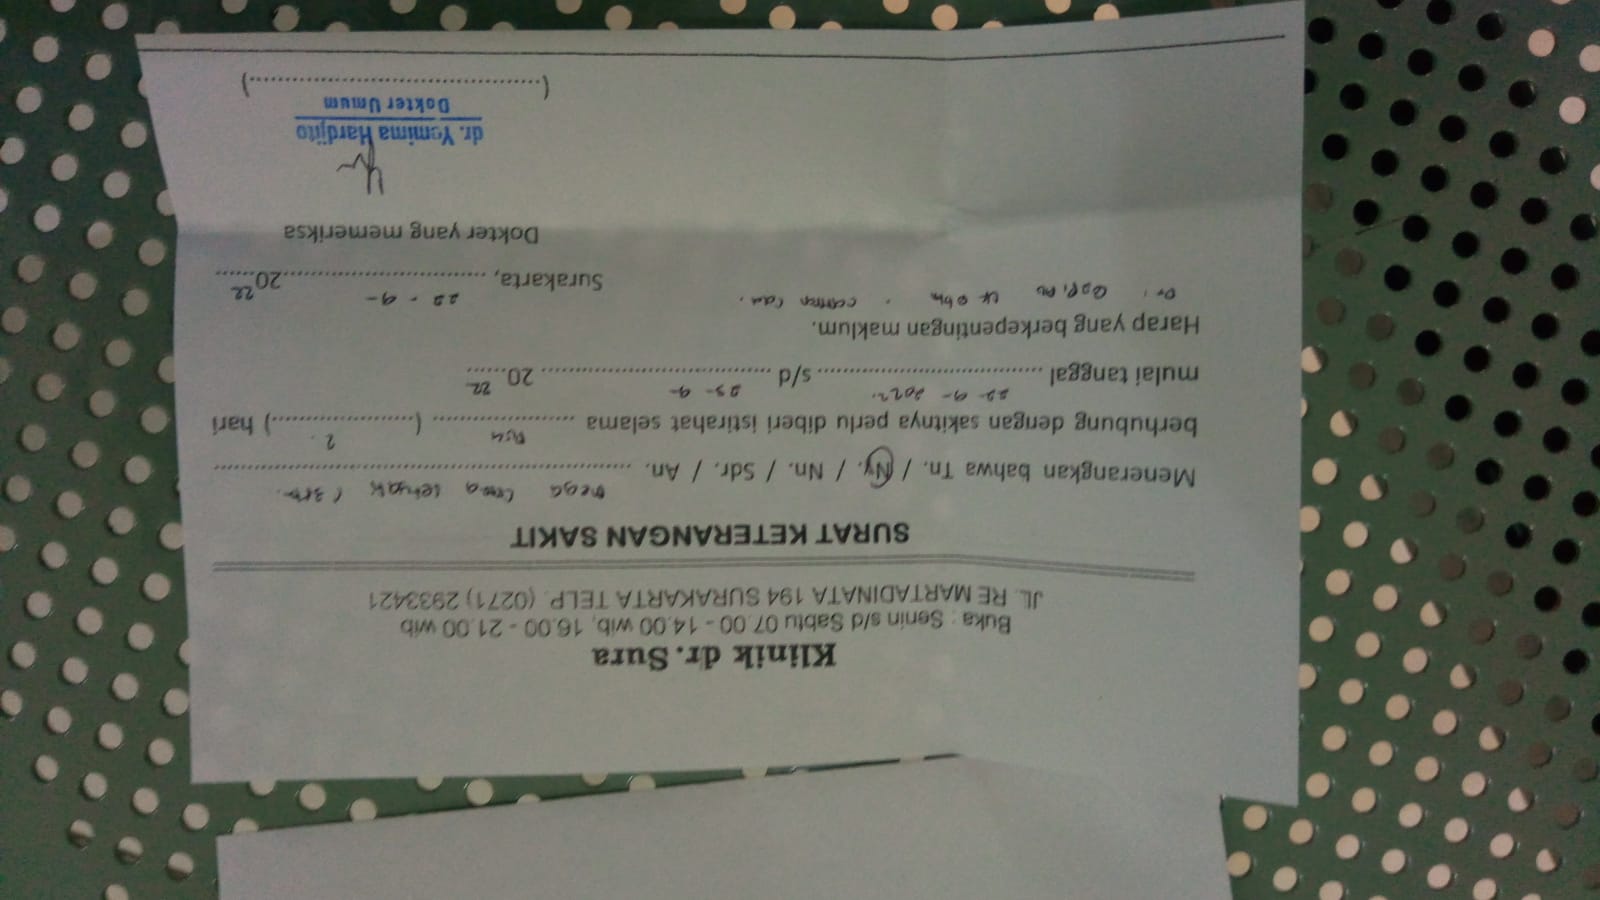 Klinik dr. Sura
Buka : Senin s/d Sabtu 07.00 - 14.00 wib, 16.00 - 21.00 wib
JL. RE MARTADINATA 194 SURAKARTA TELP. (0271) 2933421
SURAT KETERANGAN SAKIT
Menerangkan bahwa Tn. / Ny. / Nn. / Sdr. / An. mega
berhubung dengan sakitnya perlu diberi istirahat selama ........ (2) hari
mulai tanggal 22-9-2022 s/d 23-9- 2022
Harap yang berkepentingan maklum.
Surakarta, 22-9- 2022
Dokter yang memeriksa
dr. Yemima Hardjito
Dokter Umum
(........................................)